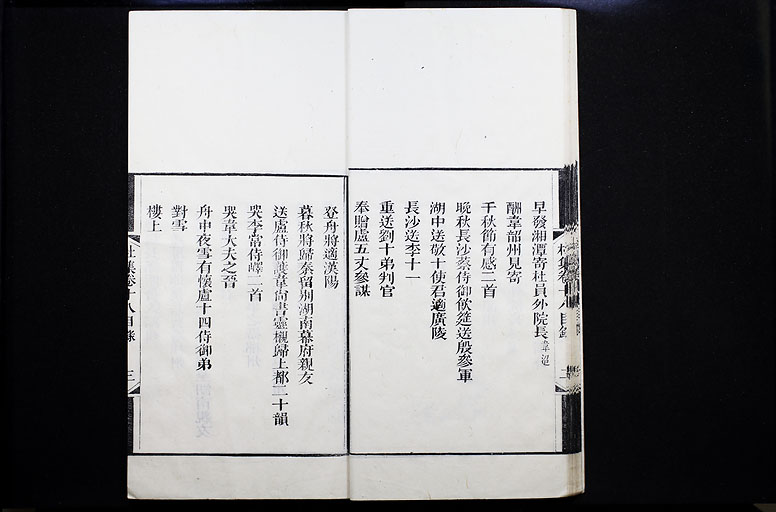 早發湘潭寄杜員外院長韋迢
酬韋韶州見寄
千秋節有感二首
晚秋長沙蔡侍御飲筵送殷參軍
湖中送敬十使君適廣陵
長沙送李十一
重送劉十弟判官
奉贈盧五丈參謀
登舟將適漢陽
暮秋將歸秦留別湖南幕府親友
送盧侍御護韋尚書靈櫬歸上都二十韻
哭李常侍嶧二首
哭韋大夫之晉
舟中夜雪有懷盧十四侍御弟
對雪
樓上
杜集卷十八目錄 三